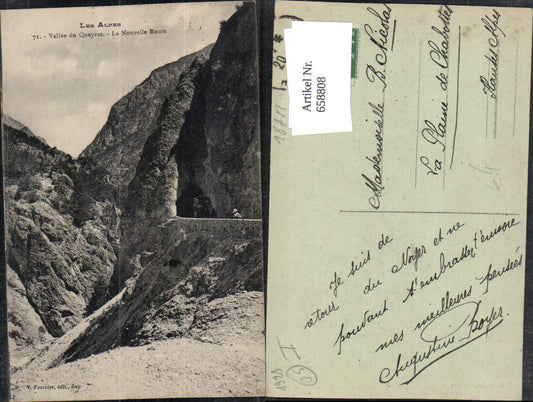 LES ALPES
71. - Vallée du Queyras. - La Nouvelle Route
V. Fournier, édit., Gap
Artikel Nr.
658808
Mademoiselle B. Nicolas
La Plaine de Chabottes
Hautes Alpes
Je suis de
retour du Noyer et ne
pouvant t'embrasser t'envoie
mes meilleures pensées
Augustine Boyer